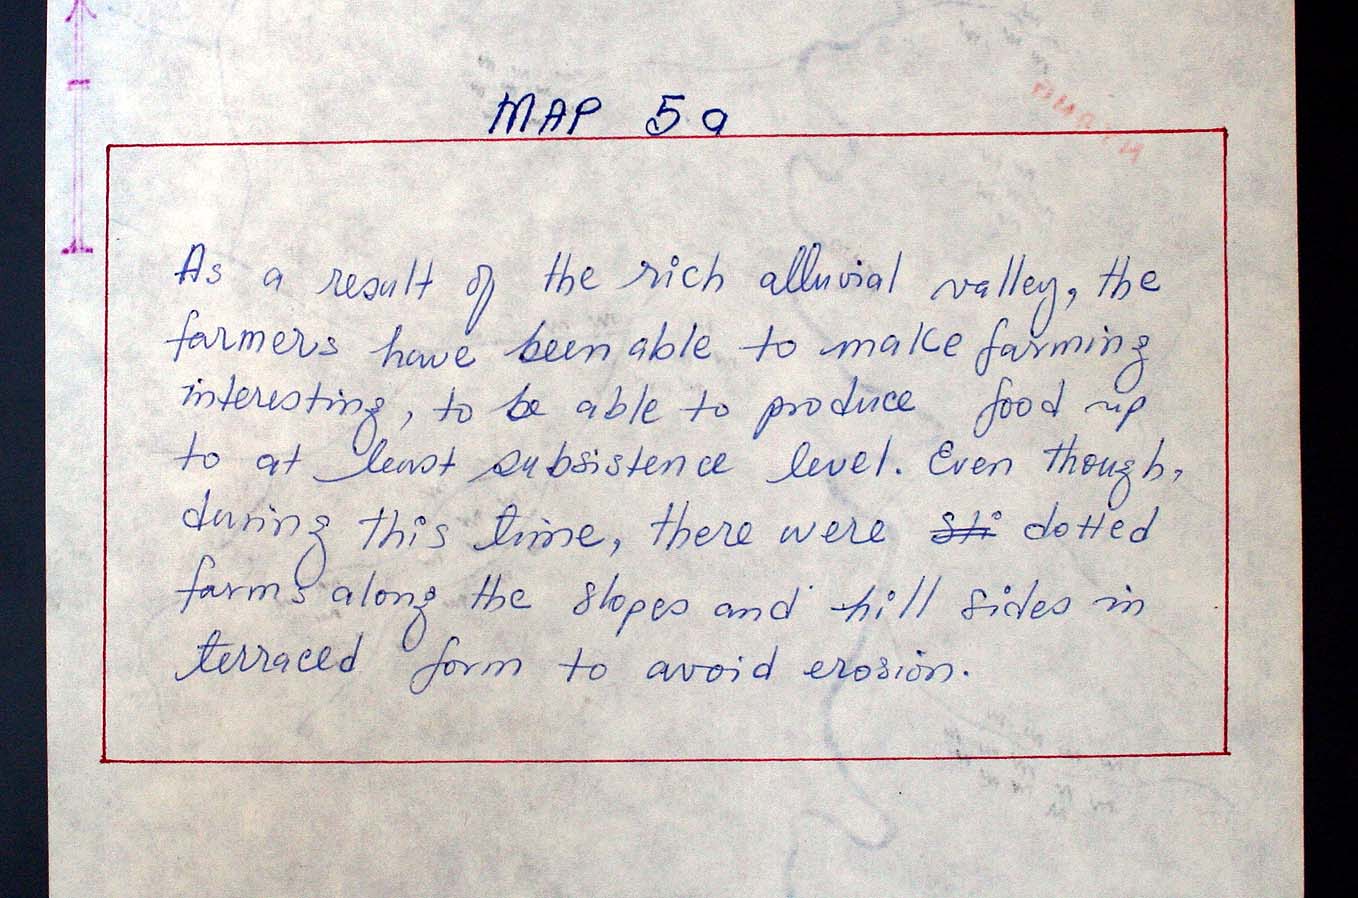 MAP 5a
As a result of the rich alluvial valley, the
farmers have been able to make farming
interesting, to be able to produce food up
to at least subsistence level. Even though,
during this time, there were sti dotted
farms along the slopes and hill sides in
terraced form to avoid erosion.